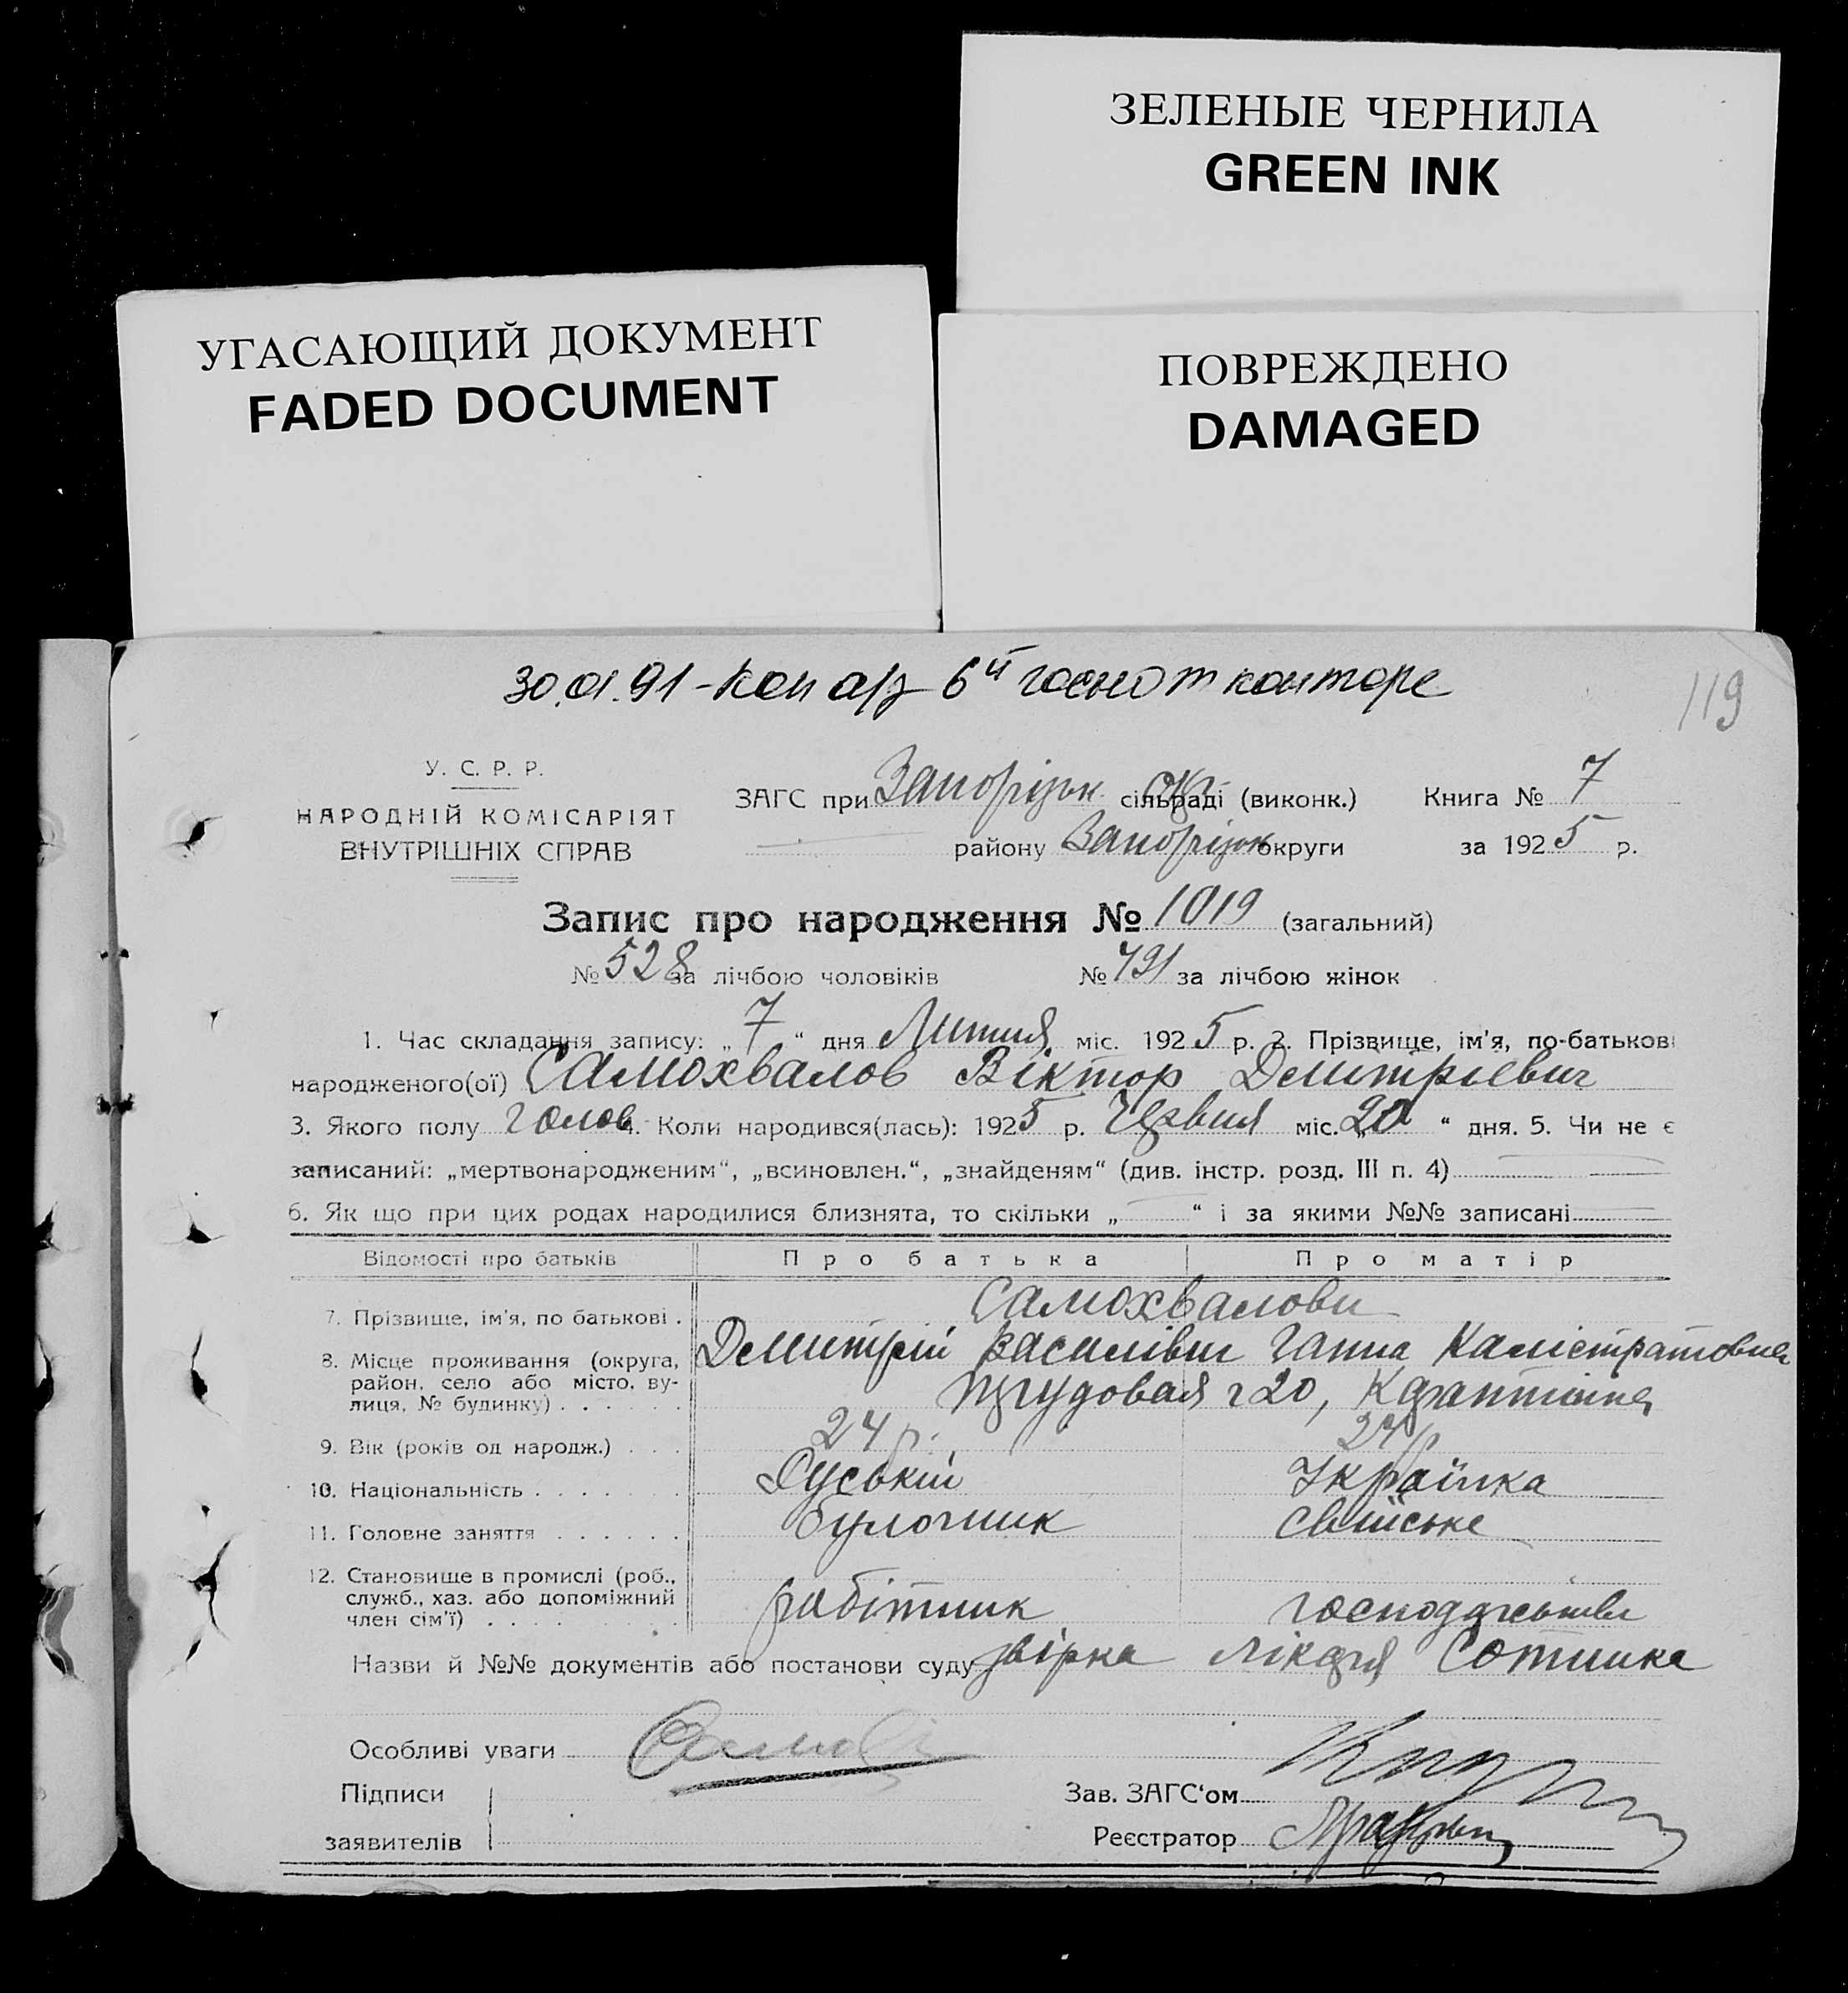 ЗЕЛЕНЫЕ ЧЕРНИЛА
GREEN INK
УГАСАЮЩИЙ ДОКУМЕНТ
FADED DOCUMENT
ПОВРЕЖДЕНО
DAMAGED
30.01.91 - коп а/з 6й госнот конторе
119
У. С. Р. Р.
НАРОДНІЙ КОМІСАРІЯТ
ВНУТРІШНІХ СПРАВ
ЗАГС при Запорізьк окр. сільраді (виконк.) Книга № 7
району Запорізьк округи за 1925 р.
Запис про народження № 1019 (загальний)
№ 528 за лічбою чоловіків № 491 за лічбою жінок
1. Час складання запису: „7“ дня Литня міс. 1925 р. 2. Прізвище, ім'я, по-батькові
народженого(ої) Самохвалов Віктор Дмитрієвич
3. Якого полу чолов 4. Коли народився(лась): 1925 р. Червня міс. „20“ дня. 5. Чи не є
записаний: „мертвонародженим“, „всиновлен.“, „знайденям“ (див. інстр. розд. III п. 4)
6. Як що при цих родах народилися близнята, то скільки „ “ і за якими №№ записані
Відомості про батьків Про батька Про матір
7. Прізвище, ім'я, по батькові . Самохвалови
Дмитрій Василівич Ганна Калістратовна
8. Місце проживання (округа,
район, село або місто, ву-
лиця, № будинку) . . . . . . Трудовая 20,
9. Вік (років од народж.) . . . 24 р. 24 р
10. Національність . . . . . . . Руській Українка
11. Головне заняття . . . . . . булочник свійське
12. Становище в промислі (роб.,
служб., хаз. або допоміжний
член сім'ї) . . . . . . . . робітник господарськ
Назви й №№ документів або постанови суду звірка лікаря Сотника
Особливі уваги
Підписи
заявителів
Зав. ЗАГС'ом
Реєстратор